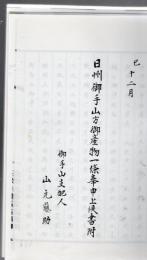 巳十二月
日州御手山方御産物一條奉申上候書附
御手山支配人
山元藤助